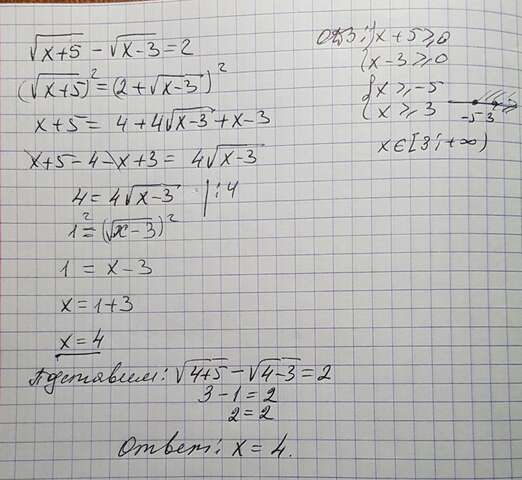 √(x+5) - √(x-3) = 2
(√(x+5))² = (2+√(x-3))²
x+5 = 4+4√(x-3)+x-3
x+5-4-x+3 = 4√(x-3)
4 = 4√(x-3) |:4
1² = (√(x-3))²
1 = x-3
x = 1+3
x = 4
Подставим: √(4+5) - √(4-3) = 2
3-1 = 2
2 = 2
Ответ: x = 4.
ОДЗ: {x+5 ≥ 0
{x-3 ≥ 0
{x ≥ -5
{x ≥ 3
-5 3
x∈[3; +∞)